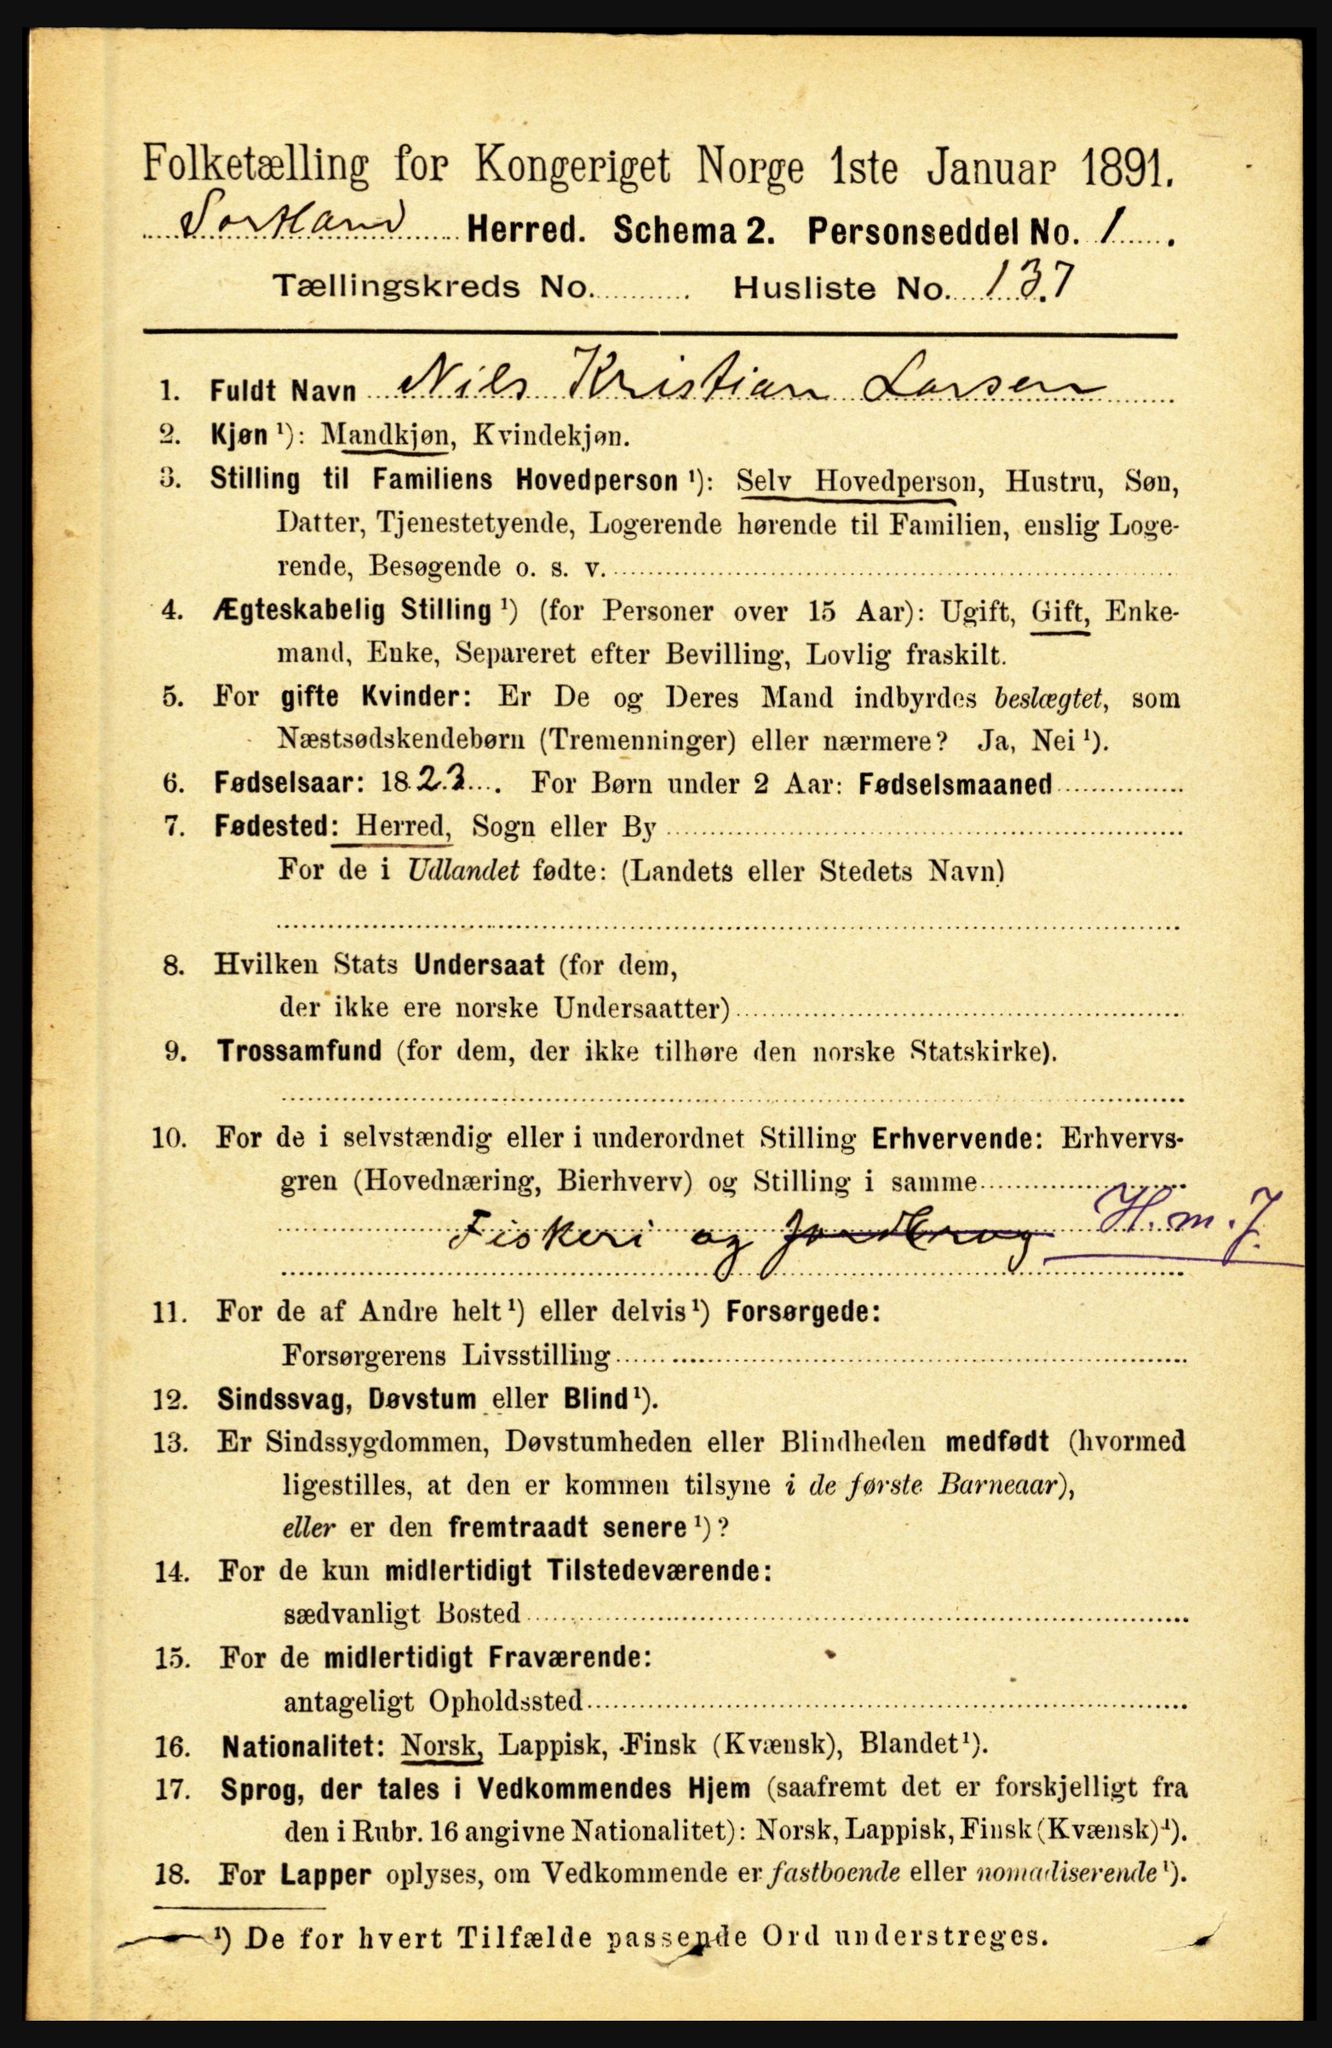 Folketælling for Kongeriget Norge 1ste Januar 1891.
Sortland Herred. Schema 2. Personseddel No. 1.
Tællingskreds No. Husliste No. 137
1. Fuldt Navn Nils Kristian Larsen
2. Kjøn ¹): Mandkjøn, Kvindekjøn.
3. Stilling til Familiens Hovedperson ¹): Selv Hovedperson, Hustru, Søn,
Datter, Tjenestetyende, Logerende hørende til Familien, enslig Loge-
rende, Besøgende o. s. v.
4. Ægteskabelig Stilling ¹) (for Personer over 15 Aar): Ugift, Gift, Enke-
mand, Enke, Separeret efter Bevilling, Lovlig fraskilt.
5. For gifte Kvinder: Er De og Deres Mand indbyrdes beslægtet, som
Næstsødskendebørn (Tremenninger) eller nærmere? Ja, Nei ¹).
6. Fødselsaar: 1823. For Børn under 2 Aar: Fødselsmaaned
7. Fødested: Herred, Sogn eller By
For de i Udlandet fødte: (Landets eller Stedets Navn)
8. Hvilken Stats Undersaat (for dem,
der ikke ere norske Undersaatter)
9. Trossamfund (for dem, der ikke tilhøre den norske Statskirke).
10. For de i selvstændig eller i underordnet Stilling Erhvervende: Erhvervs-
gren (Hovednæring, Bierhverv) og Stilling i samme
Fiskeri og Jordbrug H. m. J.
11. For de af Andre helt ¹) eller delvis ¹) Forsørgede:
Forsørgerens Livsstilling
12. Sindssvag, Døvstum eller Blind ¹).
13. Er Sindssygdommen, Døvstumheden eller Blindheden medfødt (hvormed
ligestilles, at den er kommen tilsyne i de første Barneaar),
eller er den fremtraadt senere ¹)?
14. For de kun midlertidigt Tilstedeværende:
sædvanligt Bosted
15. For de midlertidigt Fraværende:
antageligt Opholdssted
16. Nationalitet: Norsk, Lappisk, Finsk (Kvænsk), Blandet ¹).
17. Sprog, der tales i Vedkommendes Hjem (saafremt det er forskjelligt fra
den i Rubr. 16 angivne Nationalitet): Norsk, Lappisk, Finsk (Kvænsk) ¹).
18. For Lapper oplyses, om Vedkommende er fastboende eller nomadiserende ¹).
¹) De for hvert Tilfælde passende Ord understreges.